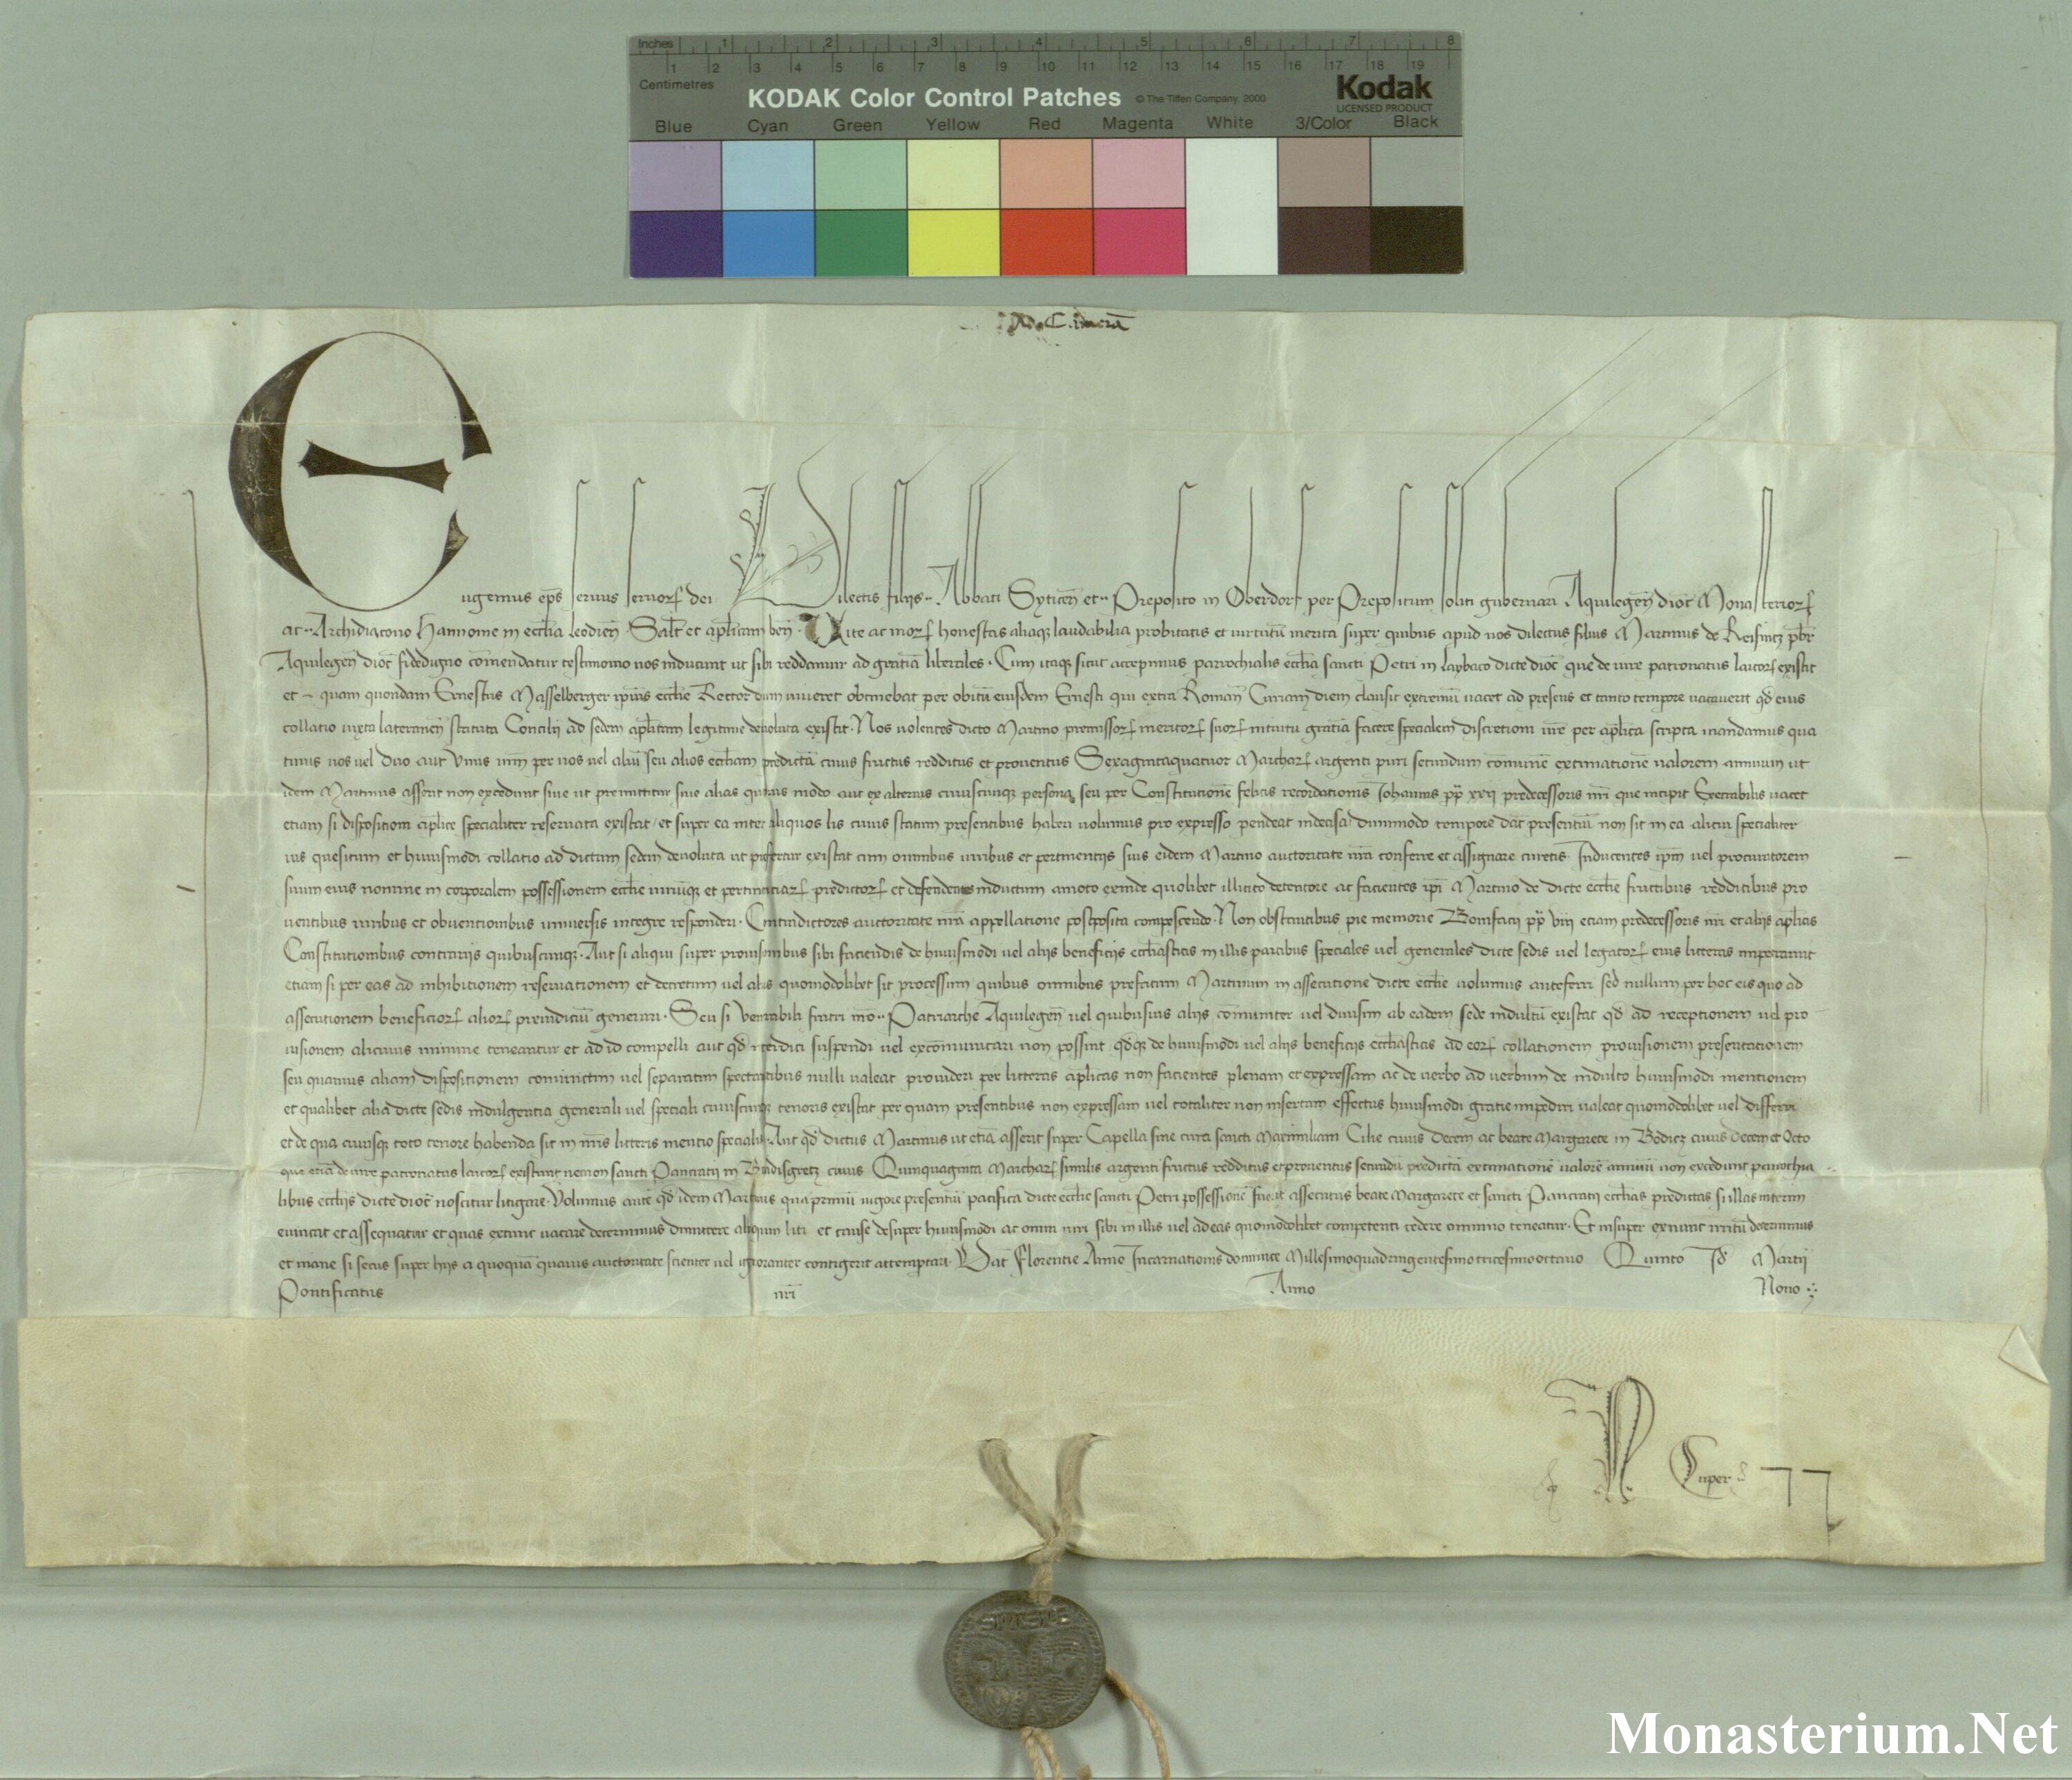 Inches 1 2 3 4 5 6 7 8
1 2 3 4 5 6 7 8 9 10 11 12 13 14 15 16 17 18 19
Centimetres
KODAK Color Control Patches © The Tiffen Company, 2000 Kodak
LICENSED PRODUCT
Blue Cyan Green Yellow Red Magenta White 3/Color Black
Eugenius ep̄s seruus seruoꝝ dei Dilectis filijs·· Abbati Syticen̄ et·· Preposito in Oberdorf per Prepositum soliti gubernari Aquilegen̄ dioc̄ Monasterioꝝ
ac·· Archidiacono Hannonie in ecclīa Leodien̄ · Salt̄ et ap̄licam ben̄ · Vite ac moꝝ honestas aliaqꝫ laudabilia probitatis et uirtutū merita super quibus apud nos dilectus filius Martinus de Reisintz pb̄r
Aquilegen̄ dioc̄ fidedigno com̄endatur testimonio nos inducunt ut sibi reddamur ad gratiā liberales · Cum itaqꝫ sicut accepimus parrochialis ecclīa sancti Petri in Laybaco dicte dioc̄ que de iure patronatus laicoꝝ existit
et quam quondam Ernestus Masselberger ip̄ius ecclīe Rector dum uiueret obtinebat per obitū eiusdem Ernesti qui extra Roman̄ Curiam diem clausit extremū uacet ad presens et tanto tempore uacauerit qd̄ eius
collatio iuxta lateranen̄ statuta Concilij ad sedem ap̄licam legitime deuoluta existit · Nos uolentes dicto Martino premissoꝝ meritoꝝ suoꝝ intuitu gratiā facere specialem discretioni ur̄e per ap̄lica scripta mandamus qua
tinus uos uel duo aut Vnus ur̄m per uos uel aliū seu alios eccl̄iam predictā cuius fructus redditus et prouentus Sexagintaquatuor Marchaꝝ argenti puri secundum com̄unē extimationē ualorem annuum ut
idem Martinus asserit non excedunt siue ut premittitur siue alias quouis modo aut ex alterius cuiuscunqꝫ persona seu per Constitutionē felicis recordationis Iohannis pp̄ xxij predecessoris nr̄i que incipit Execrabilis uacet
etiam si dispositioni ap̄lice specialiter reseruata existat et super ea inter aliquos lis cuius statum presentibus haberi uolumus pro expresso pendeat indecisa dummodo tempore dat̄ presentiū non sit in ea alicui specialiter
ius quesitum et huiusmodi collatio ad dictam sedem deuoluta ut prefertur existat cum omnibus iuribus et pertinentijs suis eidem Martino auctoritate nr̄a conferre et assignare curetis · Inducentes ip̄m uel procuratorem
suum eius nomine in corporalem possessionem ecclīe iuriūqꝫ et pertinentiaꝝ predictoꝝ et defendentes inductum amoto exinde quolibet illicito detentore ac facientes ip̄i Martino de dicte ecclīe fructibus redditibus pro
uentibus iuribus et obuentionibus uniuersis integre responderi · Contradictores auctoritate nr̄a appellatione postposita compescendo · Non obstantibus pie memorie Bonifacij pp̄ viij etiam predecessoris nr̄i et alijs ap̄licis
Constitutionibus contrarijs quibuscunqꝫ · Aut si aliqui super prouisionibus sibi faciendis de huiusmodi uel alijs beneficijs eccl̄iasticis in illis partibus speciales uel generales dicte sedis uel legatoꝝ eius litteras impetrarint
etiam si per eas ad inhibitionem reseruationem et decretum uel alias quomodolibet sit processum quibus omnibus prefatum Martinum in assecutione dicte ecclīe uolumus anteferri sed nullum per hoc eis quo ad
assecutionem beneficioꝝ alioꝝ preiudiciū generari · Seu si Venerabili fratri nr̄o ·· Patriarche Aquilegen̄ uel quibusuis alijs com̄uniter uel diuisim ab eadem sede indultū existat qd̄ ad receptionem uel pro
uisionem alicuius minime teneantur et ad id compelli aut qd̄ interdici suspendi uel excom̄unicari non possint qd̄qꝫ de huiusmodi uel alijs beneficijs eccl̄iasticis ad eoꝝ collationem prouisionem presentationem
seu quamuis aliam dispositionem coniunctim uel separatim spectantibus nulli ualeat prouideri per litteras ap̄licas non facientes plenam et expressam ac de uerbo ad uerbum de indulto huiusmodi mentionem
et qualibet alia dicte sedis indulgentia generali uel speciali cuiuscunqꝫ tenoris existat per quam presentibus non expressam uel totaliter non insertam effectus huiusmodi gratie impediri ualeat quomodolibet uel differri
et de qua cuiusqꝫ toto tenore habenda sit in nr̄is litteris mentio specialis · Aut qd̄ dictus Martinus ut etiā asserit super Capella sine cura sancti Maximiliani Cilie cuius Decem ac beate Margarete in Vodicz cuius Decem et Octo
que etiā de iure patronatus laicoꝝ existunt necnon sancti Pancratij in Windisgretz cuius Quinquaginta Marchaꝝ similis argenti fructus redditus et prouentus secundū predictā extimationē ualorē annuū non excedunt parrochia
libus eccl̄ijs dicte dioc̄ noscitur litigare · Volumus autē qd̄ idem Martinus quamprimū uigore presentiū pacifica dicte ecclīe sancti Petri possessionē fuerit assecutus beate Margarete et sancti Pancratij eccl̄ias predictas si illas interim
euincat et assequatur et quas extunc uacare decernimus dimittere alioquin liti et cause desuper huiusmodi ac omni iuri sibi in illis uel ad eas quomodolibet competenti cedere omnino teneatur · Et insuper exnunc irritū decernimus
et inane si secus super hijs a quoquā quauis auctoritate scienter uel ignoranter contigerit attemptari · Dat̄ Florentie Anno Incarnationis dominice Millesimoquadringentesimotricesimooctauo Quinto Id̄ Martij
Pontificatus nr̄i Anno Nono
Cuper
SPASPE
Monasterium.Net